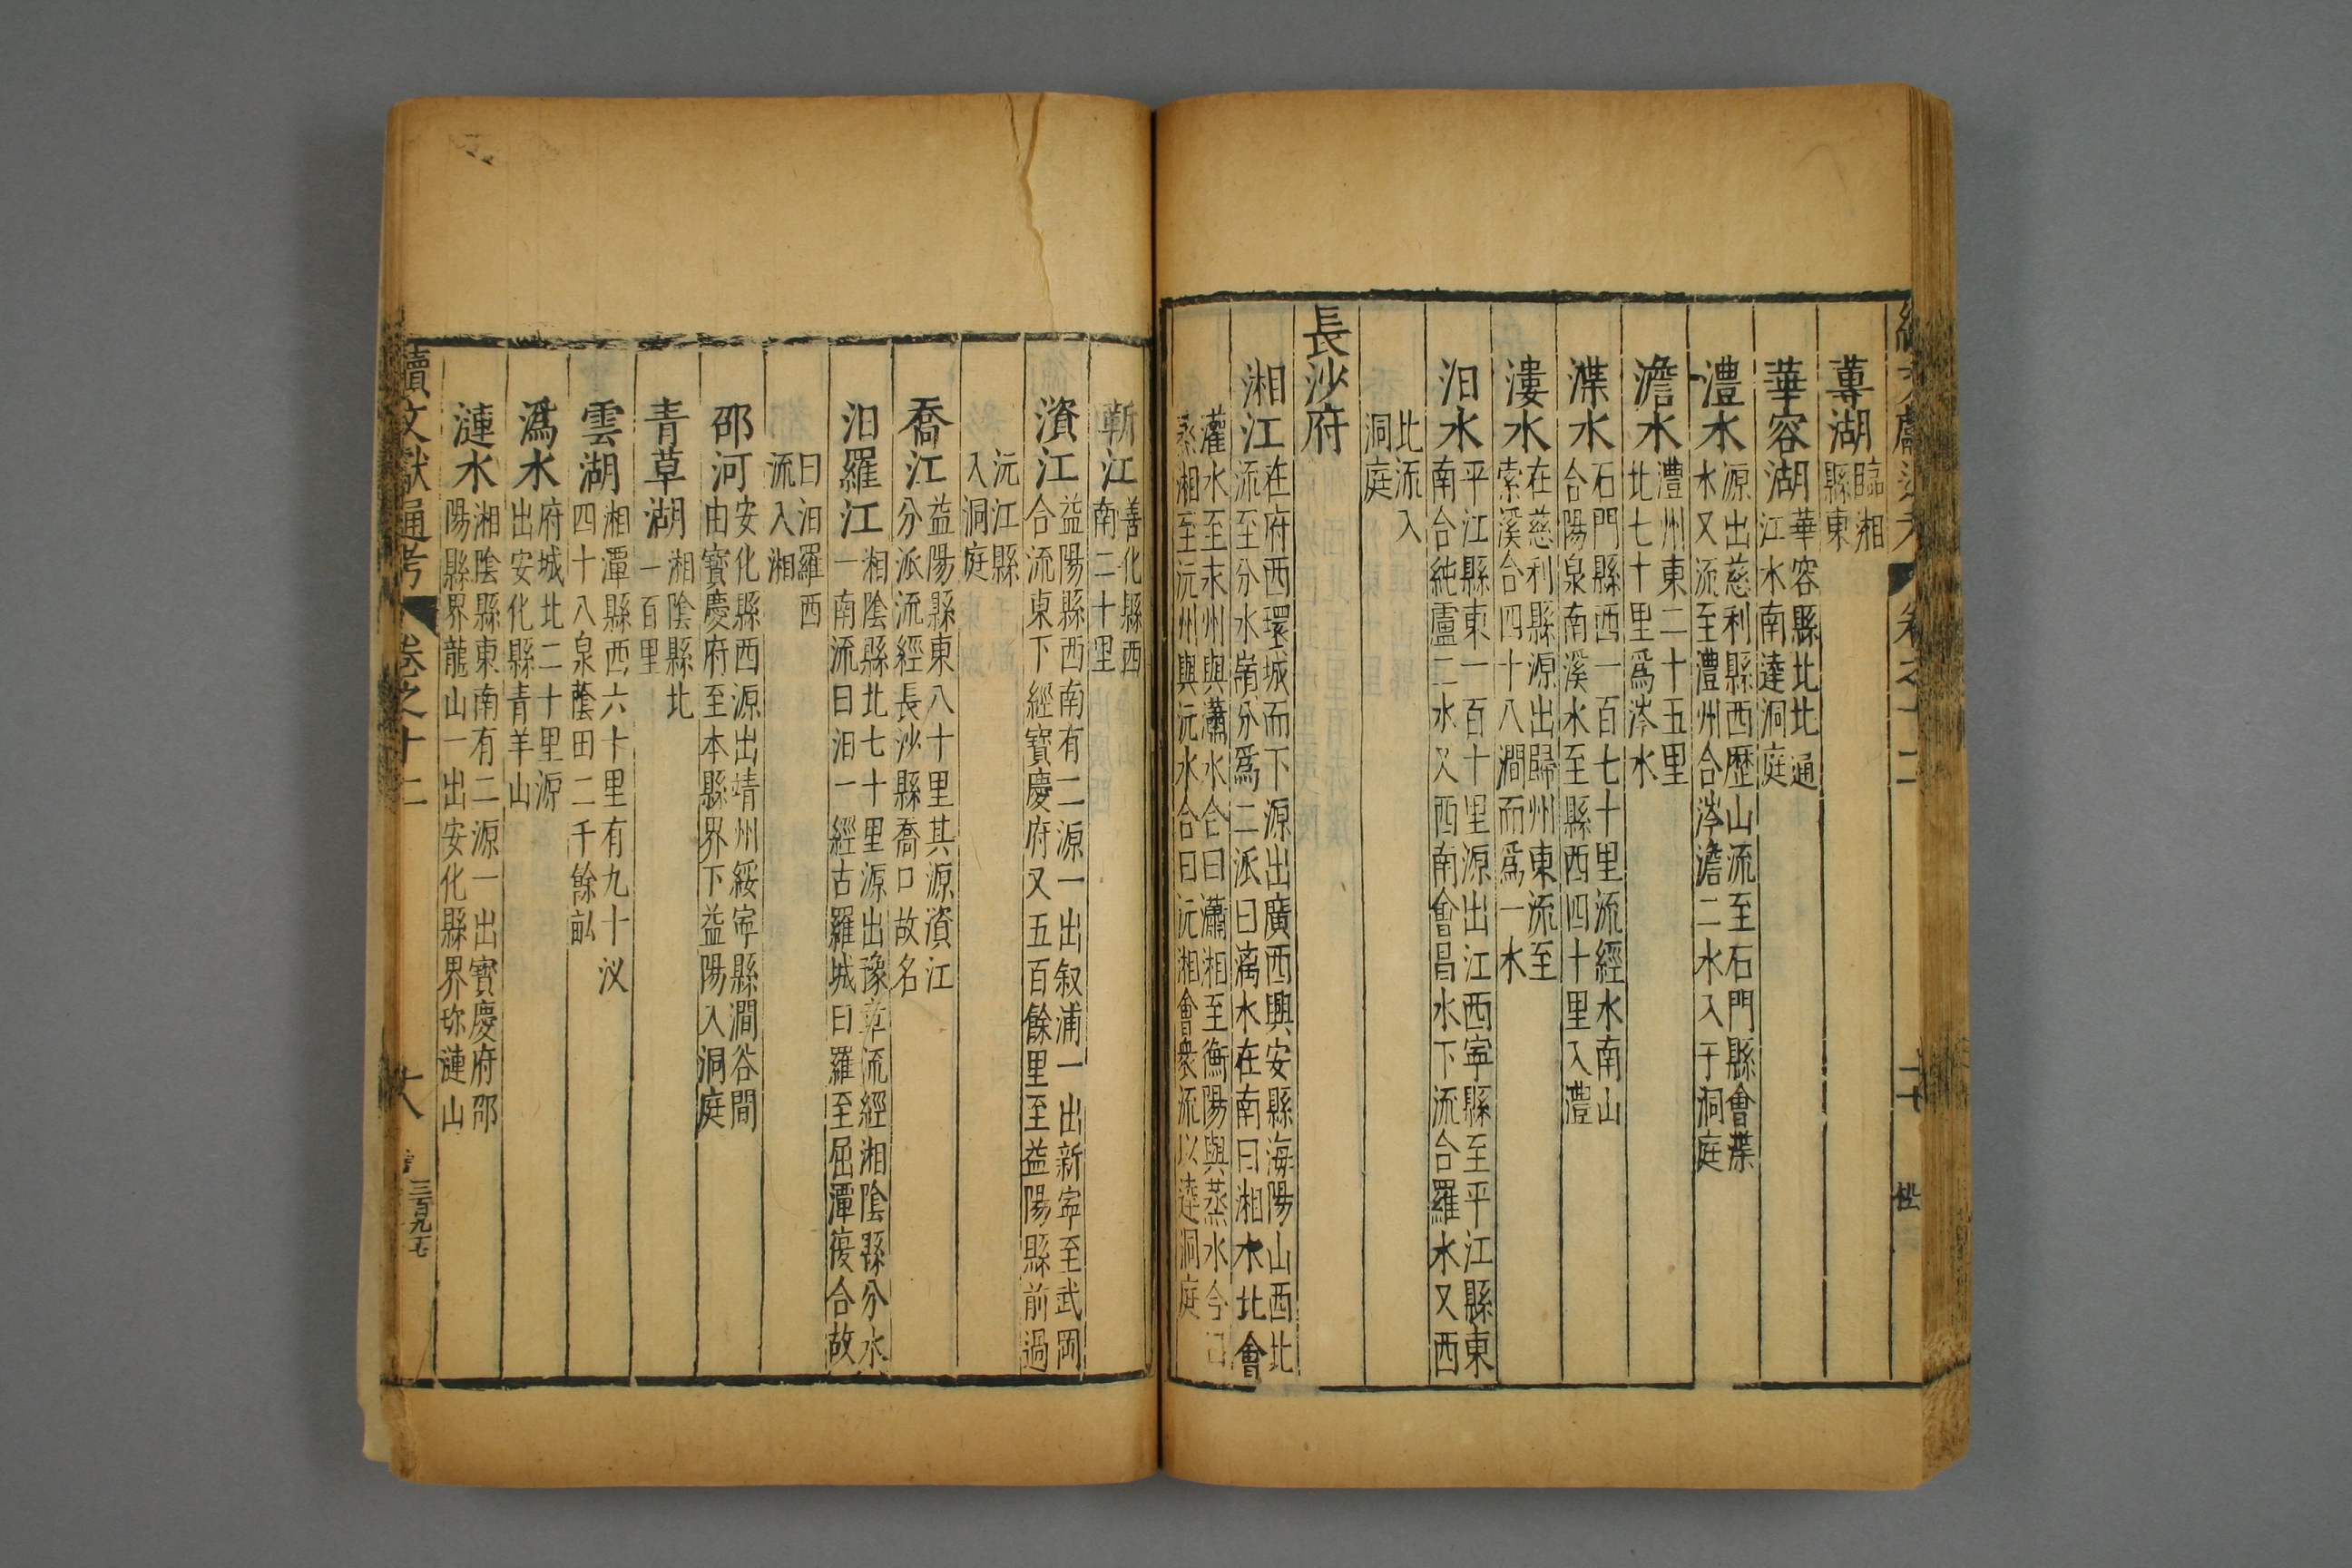 蓴湖臨湘縣東
華容湖華容縣北北通江水南達洞庭
澧水源出慈利縣西歷山流至石門縣會渫水又流至澧州合涔澹二水入于洞庭
澹水澧州東二十五里北七十里爲涔水
渫水石門縣西一百七十里流經水南山合陽泉南溪水至縣西四十里入澧
漊水在慈利縣源出歸州東流至索溪合四十八澗而爲一水
汨水平江縣東一百十里源出江西寧縣至平江縣東南合純盧二水又西南會昌水下流合羅水又西
北流入洞庭
長沙府
湘江在府西環城而下源出廣西興安縣海陽山西北流至分水嶺分爲二派曰漓水在南曰湘水北會
灌水至永州與瀟水合曰瀟湘至衡陽與蒸水合曰蒸湘至沅州與沅水合曰沅湘會衆流以達洞庭
靳江善化縣西南二十里
資江益陽縣西南有二源一出叙浦一出新寧至武岡合流東下經寶慶府又五百餘里至益陽縣前過
沅江縣入洞庭
喬江益陽縣東八十里其源資江分派流經長沙縣喬口故名
汨羅江湘陰縣北七十里源出豫章流經湘陰縣分水一南流曰汨一經古羅城曰羅至屈潭復合故
曰汨羅西流入湘
邵河安化縣西源出靖州綏寧縣澗谷間由寶慶府至本縣界下益陽入洞庭
青草湖湘陰縣北一百里
雲湖湘潭縣西六十里有九十汊四十八泉蔭田二千餘畝
潙水府城北二十里源出安化縣青羊山
漣水湘陰縣東南有二源一出寶慶府邵陽縣界龍山一出安化縣界珎漣山
續文獻通考 卷之十二 十八 三百九十七